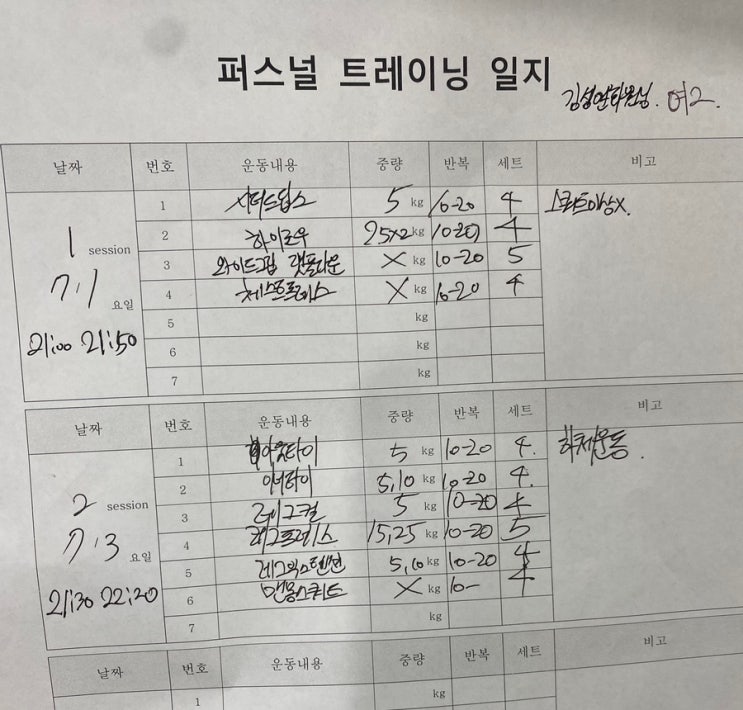 퍼스널 트레이닝 일지
여2.
날짜 번호 운동내용 중량 반복 세트 비고
1 session
7.1 요일
21:00 21:50
1 시티드딥스 5 kg 10-20 4
2 하이로우 25x2 kg 10-20 4
3 와이드그립 랫풀다운 X kg 10-20 5
4 체스트프레스 X kg 10-20 4
5 kg
6 kg
7 kg
날짜 번호 운동내용 중량 반복 세트 비고
2 session
7.3 요일
21:30 22:20
1 아웃타이 5 kg 10-20 4. 하체운동.
2 이너타이 5,10 kg 10-20 4.
3 레그컬 5 kg 10-20 4
4 레그프레스 15,25 kg 10-20 5
5 레그익스텐션 5,10 kg 10-20 4
6 맨몸스쿼트 X kg 10- 4
7 kg
날짜 번호 운동내용 중량 반복 세트 비고
1 kg